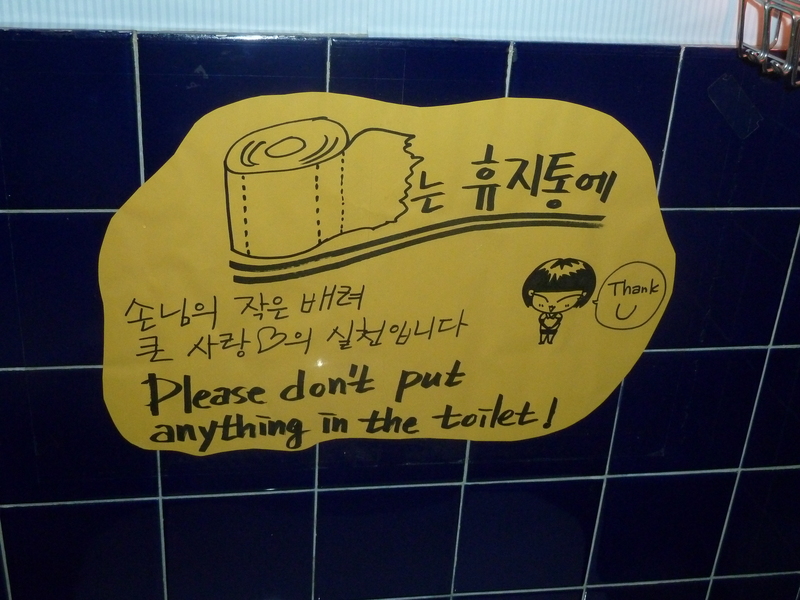 는 휴지통에
손님의 작은 배려
큰 사랑♡의 실천입니다
Thank
U
Please don't put
anything in the toilet!